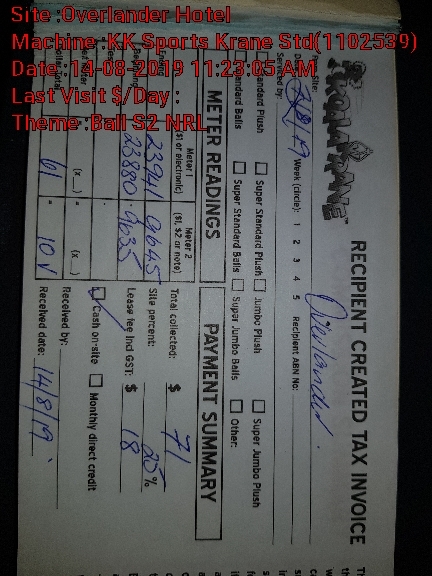 Site :Overlander Hotel
Machine :KK Sports Krane Std(1102539)
Date :14-08-2019 11:23:05 AM
Last Visit $/Day :
Theme :Ball S2 NRL
KOALA KRANE
RECIPIENT CREATED TAX INVOICE
Site: Overlander.
14/8/19 Week (circle): 1 2 3 4 5 Recipient ABN No:
Standard Plush Super Standard Plush Jumbo Plush Super Jumbo Plush
Standard Balls Super Standard Balls Super Jumbo Balls Other:
METER READINGS
PAYMENT SUMMARY
Meter 1
($1 or electronic)
Meter 2
($1, $2 or note)
23941 9645
23880 9635
(x ) (x )
61 10
Total collected: $ 71
Site percent: 25%
Lease fee incl GST: $ 18
Cash on-site Monthly direct credit
Received by:
Received date: 14/8/19